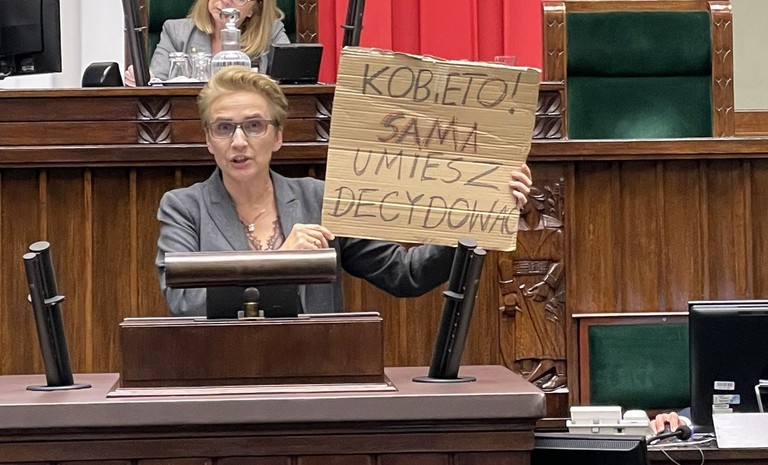 KOBiETO!
SAMA
UMIESZ
DECYDOWAĆ